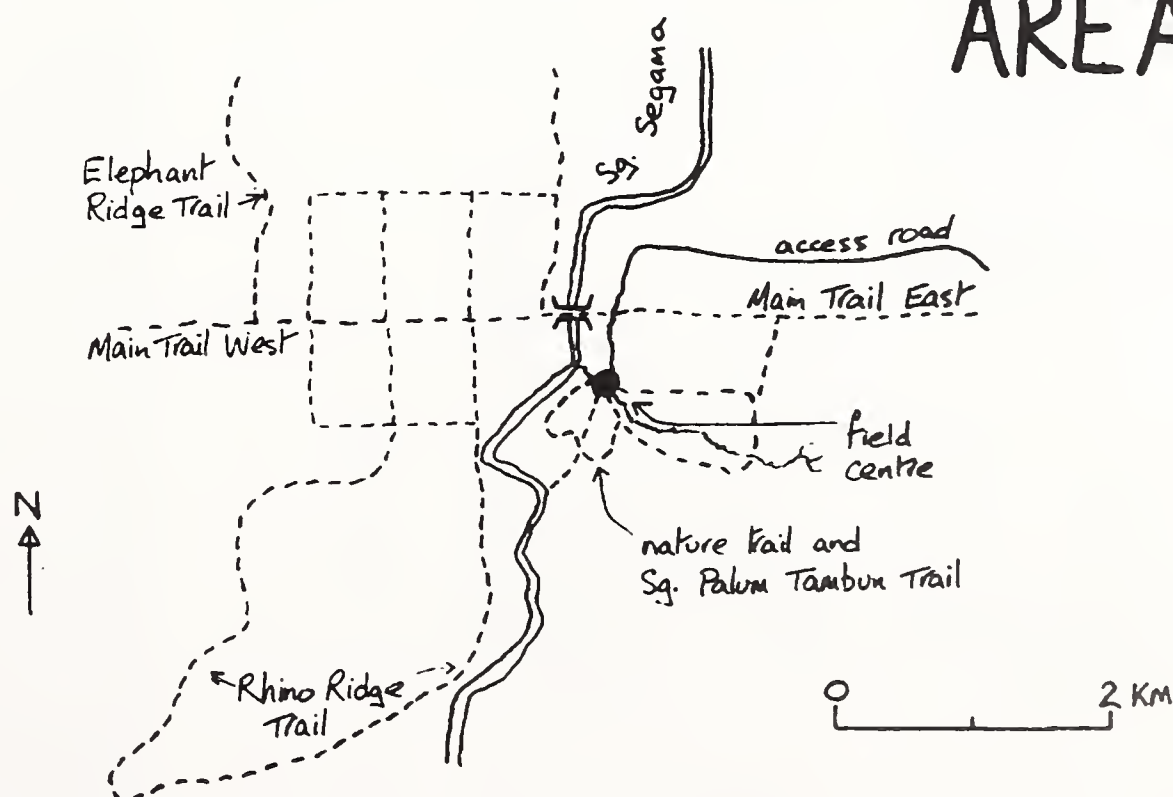 AREA
Sg. Segama
Elephant
Ridge Trail
access road
Main Trail East
Main Trail West
field
centre
N
nature trail and
Sg. Palum Tambun Trail
Rhino Ridge
Trail
0 2 KM